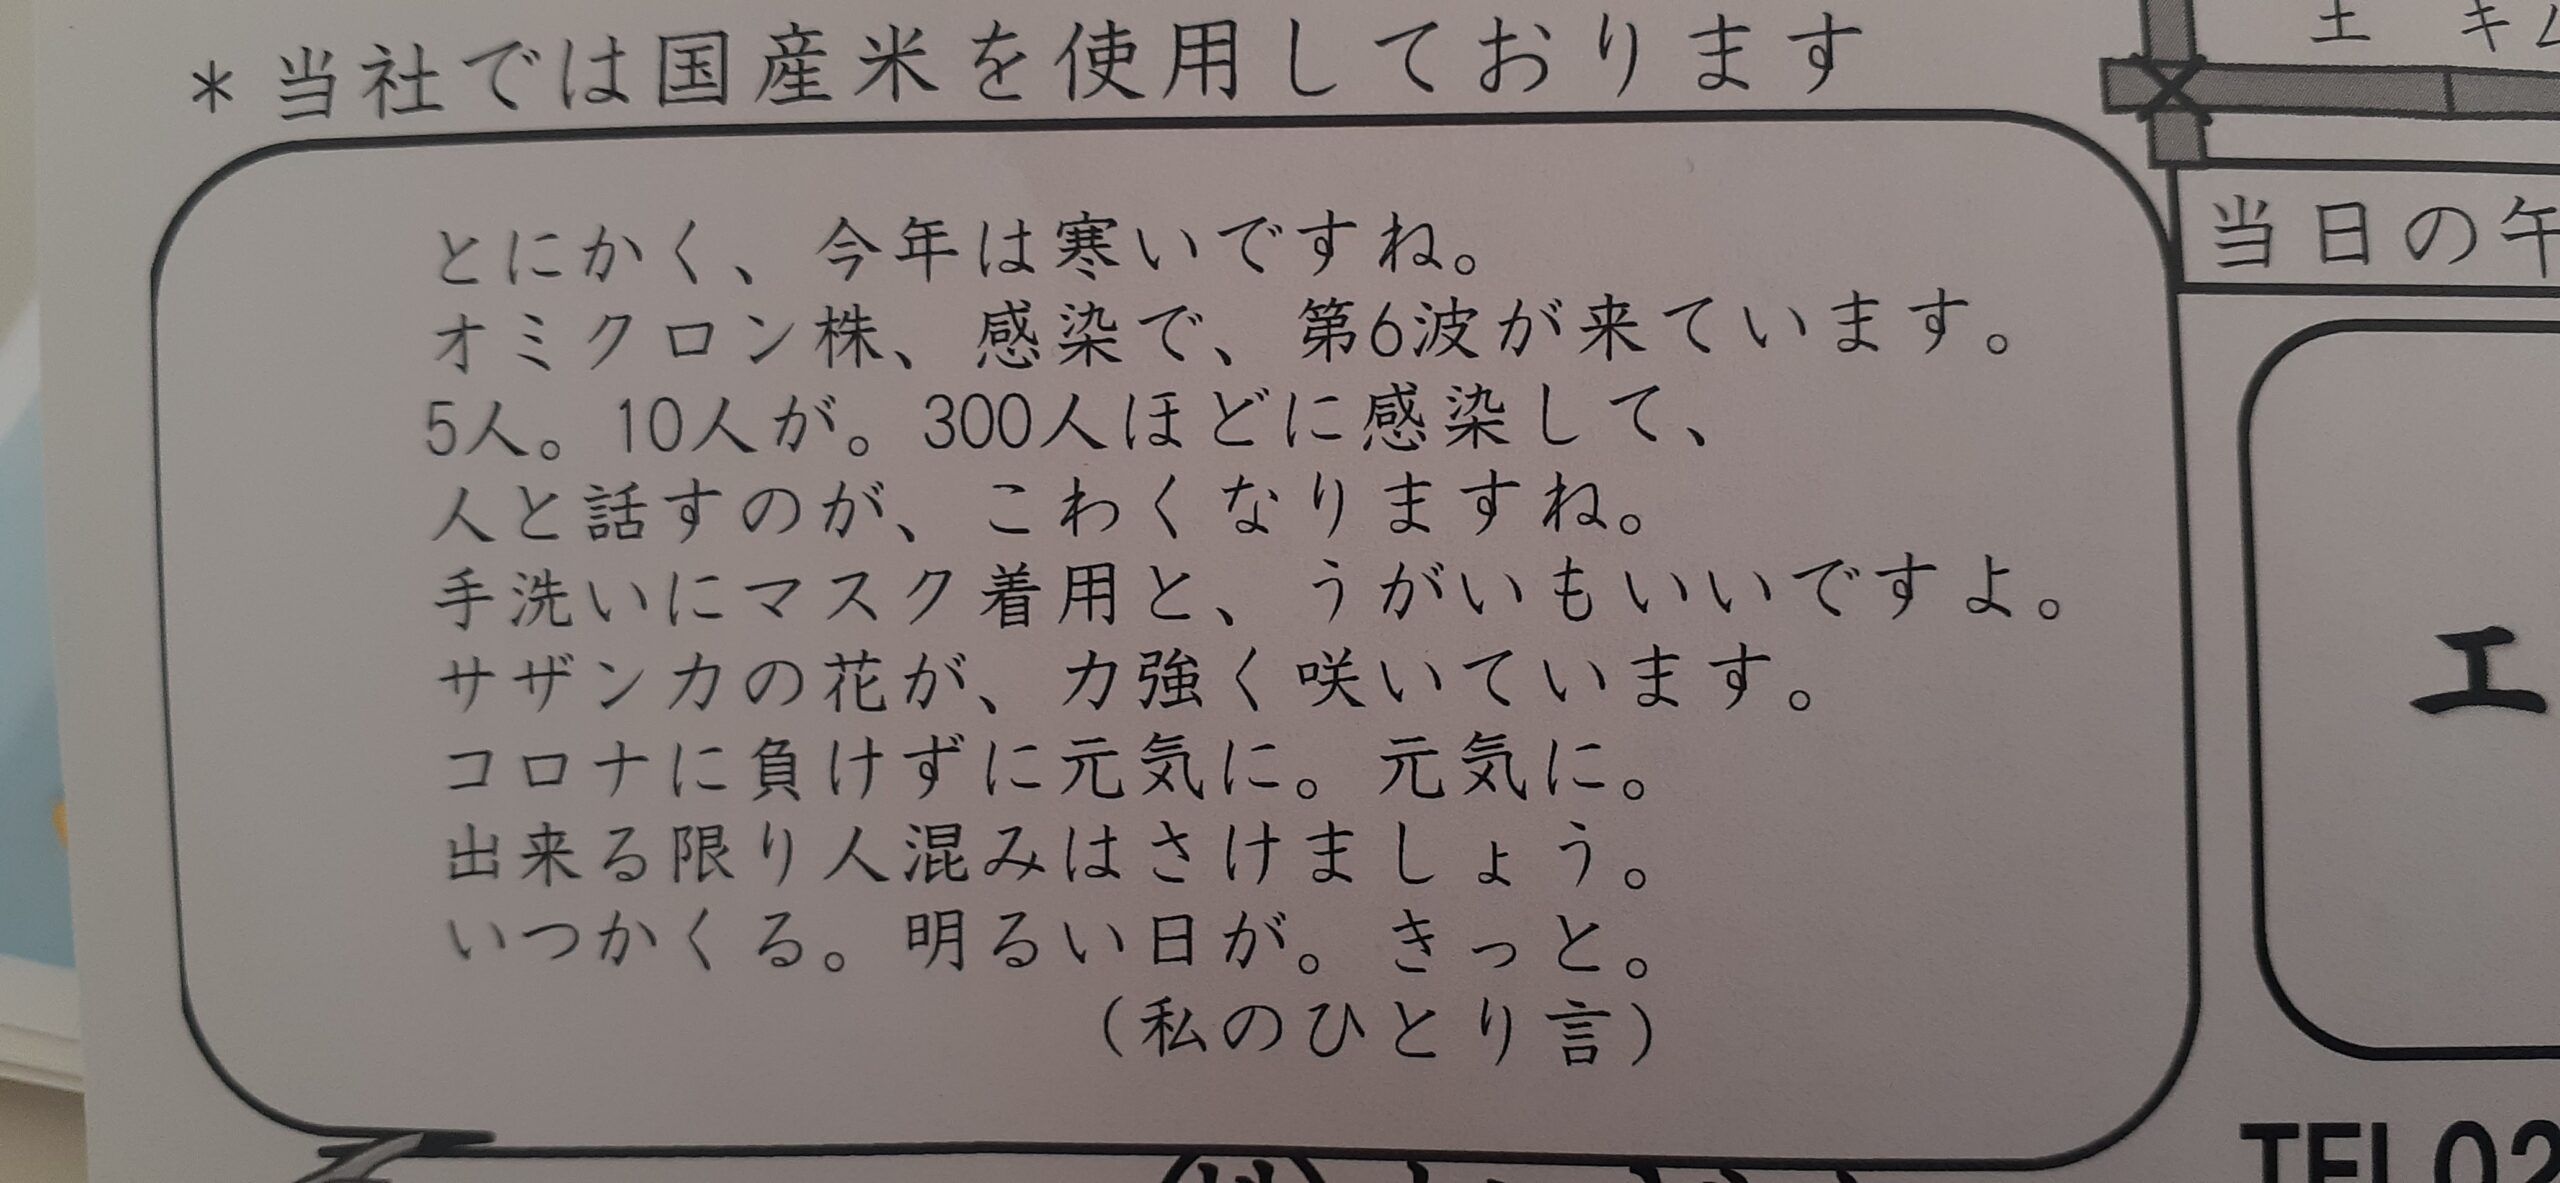 ＊当社では国産米を使用しております
とにかく、今年は寒いですね。
オミクロン株、感染で、第6波が来ています。
5人。10人が。300人ほどに感染して、
人と話すのが、こわくなりますね。
手洗いにマスク着用と、うがいもいいですよ。
サザンカの花が、力強く咲いています。
コロナに負けずに元気に。元気に。
出来る限り人混みはさけましょう。
いつかくる。明るい日が。きっと。
（私のひとり言）
土 キム
当日の午
エ
TEL02